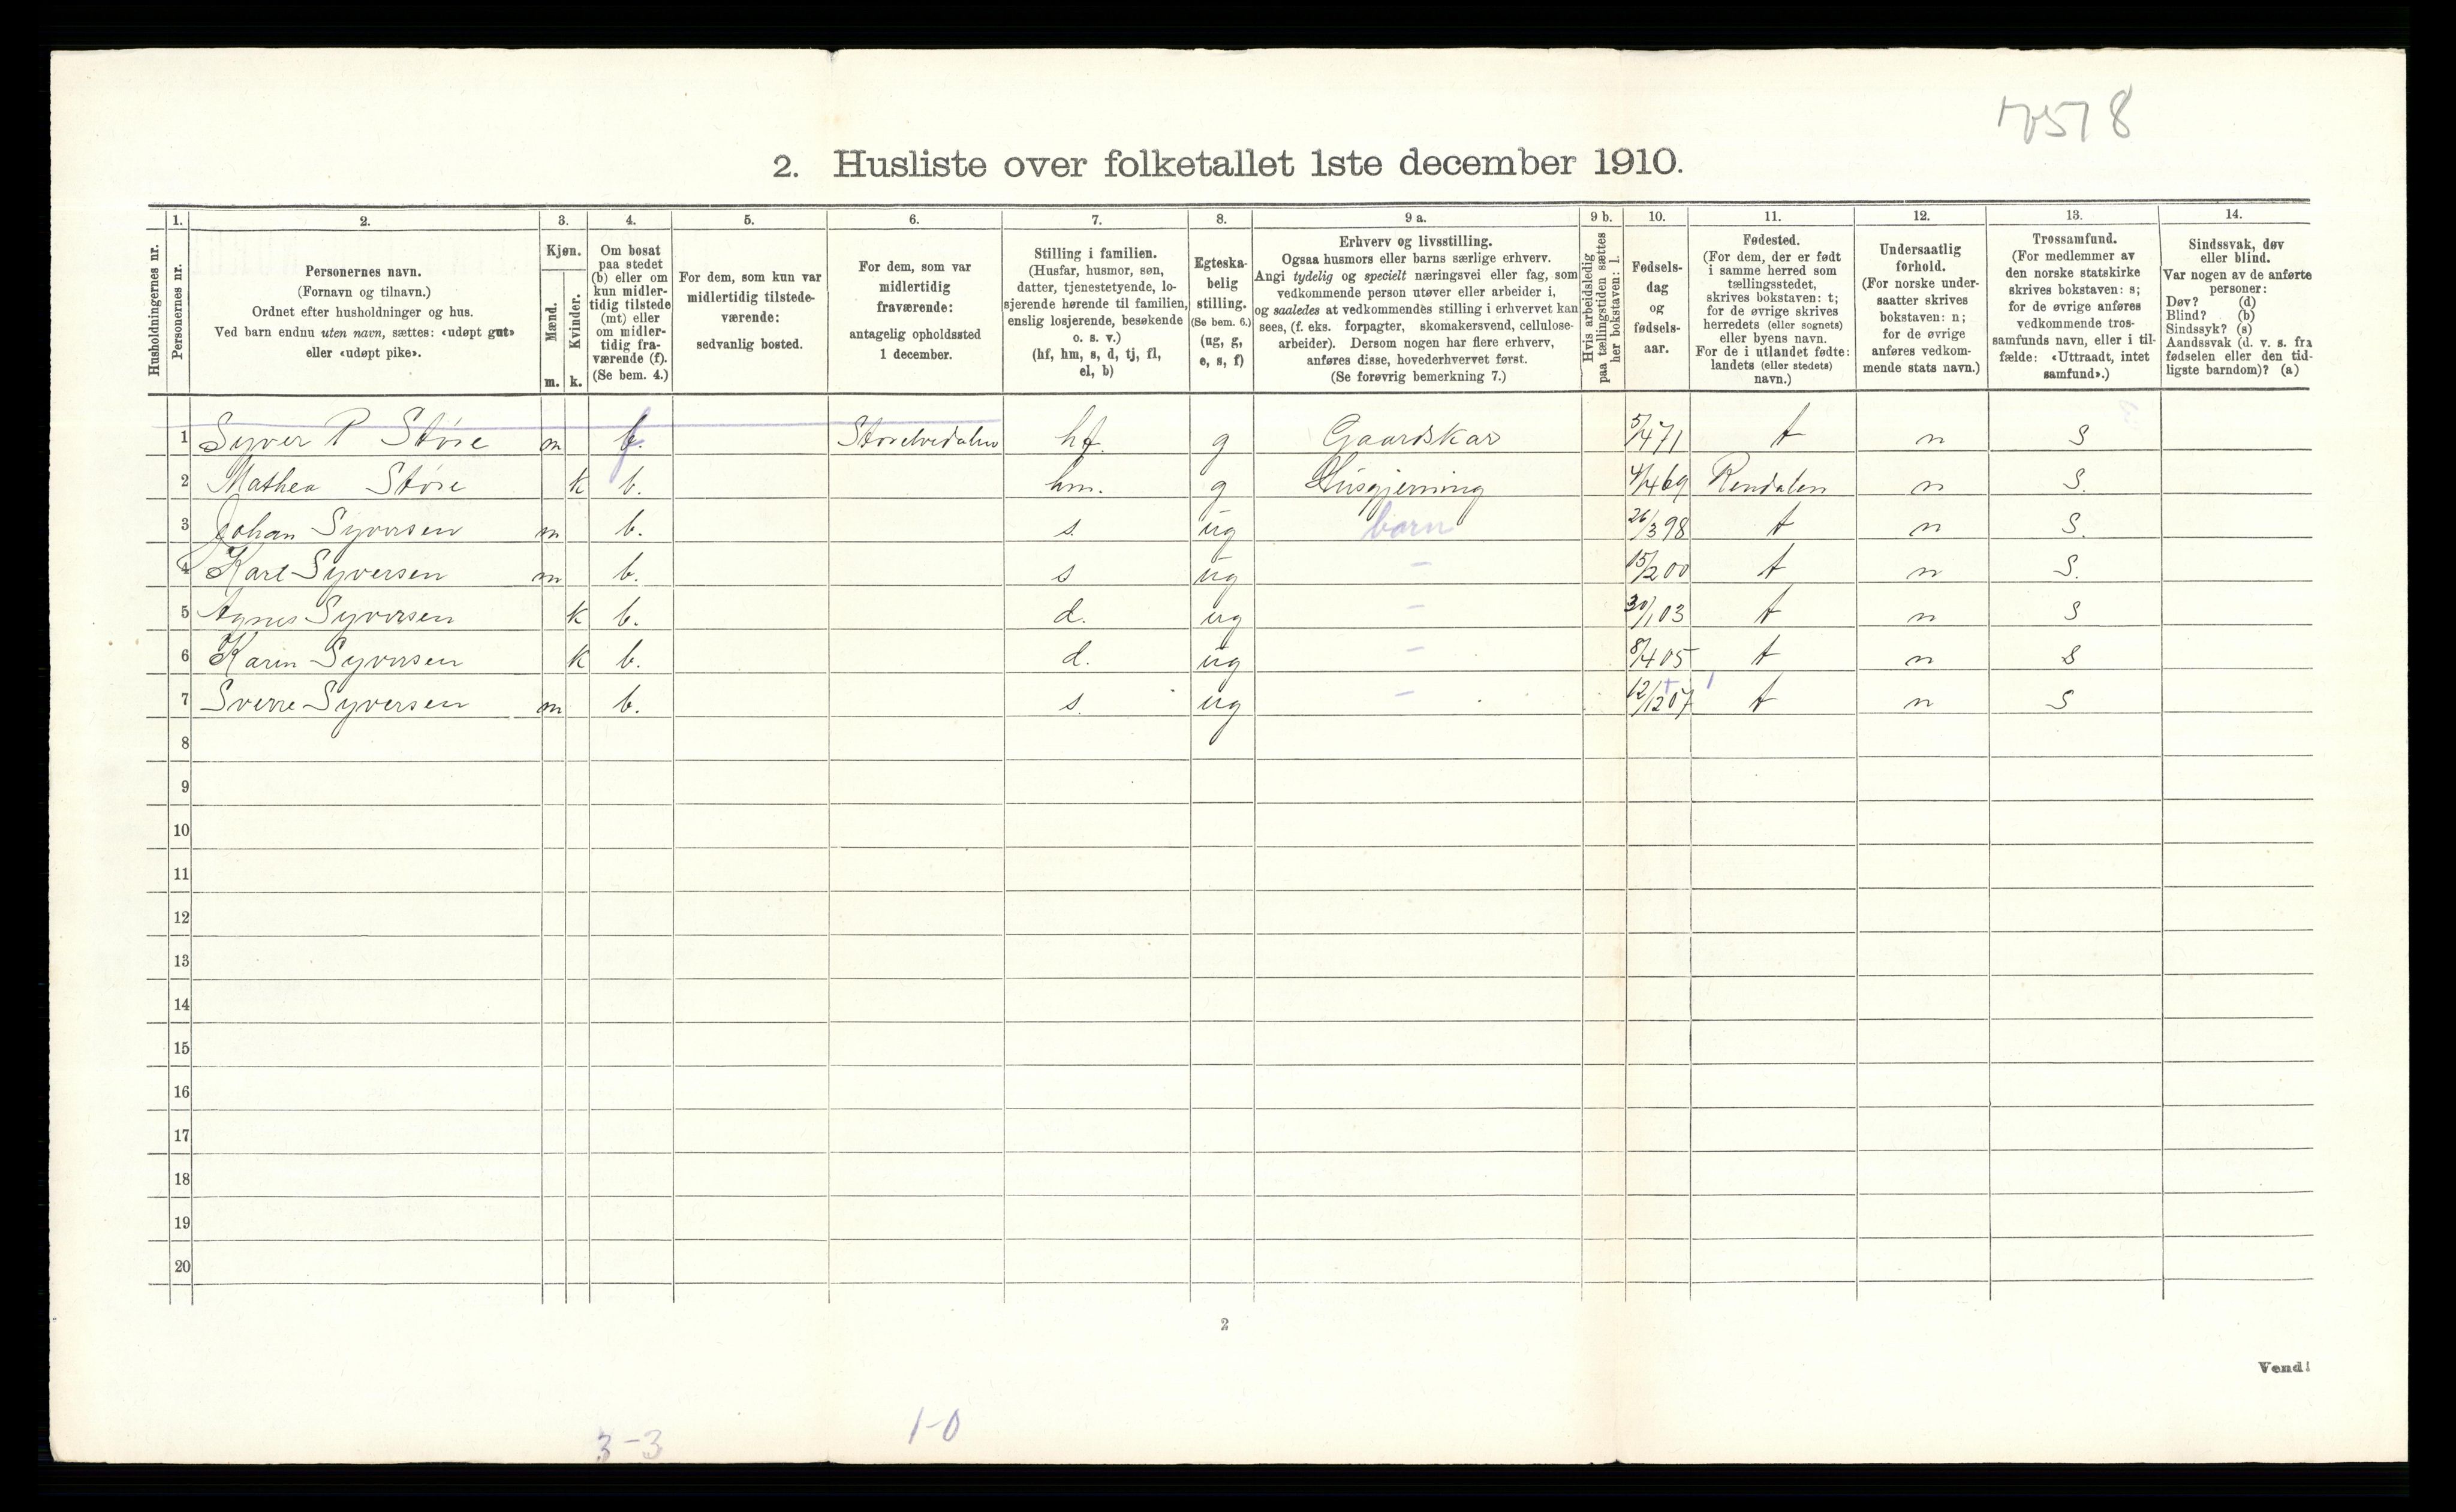 2. Husliste over folketallet 1ste december 1910.
Husholdningernes nr.
1. Personernes nr.
2. Personernes navn. (Fornavn og tilnavn.) Ordnet efter husholdninger og hus. Ved barn endnu uten navn, sættes: «udøpt gut» eller «udøpt pike».
3. Kjøn. Mænd. m. Kvinder. k.
4. Om bosat paa stedet (b) eller om kun midlertidig tilstede (mt) eller om midlertidig fraværende (f). (Se bem. 4.)
5. For dem, som kun var midlertidig tilstedeværende: sedvanlig bosted.
6. For dem, som var midlertidig fraværende: antagelig opholdssted 1 december.
7. Stilling i familien. (Husfar, husmor, søn, datter, tjenestetyende, losjerende hørende til familien, enslig losjerende, besøkende o. s. v.) (hf, hm, s, d, tj, fl, el, b)
8. Egteskabelig stilling. (Se bem. 6.) (ug, g, e, s, f)
9 a. Erhverv og livsstilling. Ogsaa husmors eller barns særlige erhverv. Angi tydelig og specielt næringsvei eller fag, som vedkommende person utøver eller arbeider i, og saaledes at vedkommendes stilling i erhvervet kan sees, (f. eks. forpagter, skomakersvend, cellulosearbeider). Dersom nogen har flere erhverv, anføres disse, hovederhvervet først. (Se forøvrig bemerkning 7.)
9 b. Hvis arbeidsledig paa tællingstiden sættes her bokstaven: l.
10. Fødselsdag og fødselsaar.
11. Fødested. (For dem, der er født i samme herred som tællingsstedet, skrives bokstaven: t; for de øvrige skrives herredets (eller sognets) eller byens navn. For de i utlandet fødte: landets (eller stedets) navn.)
12. Undersaatlig forhold. (For norske undersaatter skrives bokstaven: n; for de øvrige anføres vedkommende stats navn.)
13. Trossamfund. (For medlemmer av den norske statskirke skrives bokstaven: s; for de øvrige anføres vedkommende trossamfunds navn, eller i tilfælde: «Uttraadt, intet samfund».)
14. Sindssvak, døv eller blind. Var nogen av de anførte personer: Døv? (d) Blind? (b) Sindssyk? (s) Aandssvak (d. v. s. fra fødselen eller den tidligste barndom)? (a)
1 Syver P Støre m f. Storelvedalen hf. g Gaardskar 5/4 71 t n S
2 Mathea Støre k b. hm. g Husgjerning 4/4 69 Rendalen n S.
3 Johan Syversen m b. s. ug barn 26/3 98 t n S.
4 Karl Syversen m b. s ug – 15/2 00 t n S.
5 Agnes Syversen k b. d. ug – 30/1 03 t n S
6 Karin Syversen k b. d. ug – 8/4 05 t n S
7 Sverre Syversen m b. s. ug – 12/12 07 t n S
8
9
10
11
12
13
14
15
16
17
18
19
20
2
Vend!
3-3
1-0